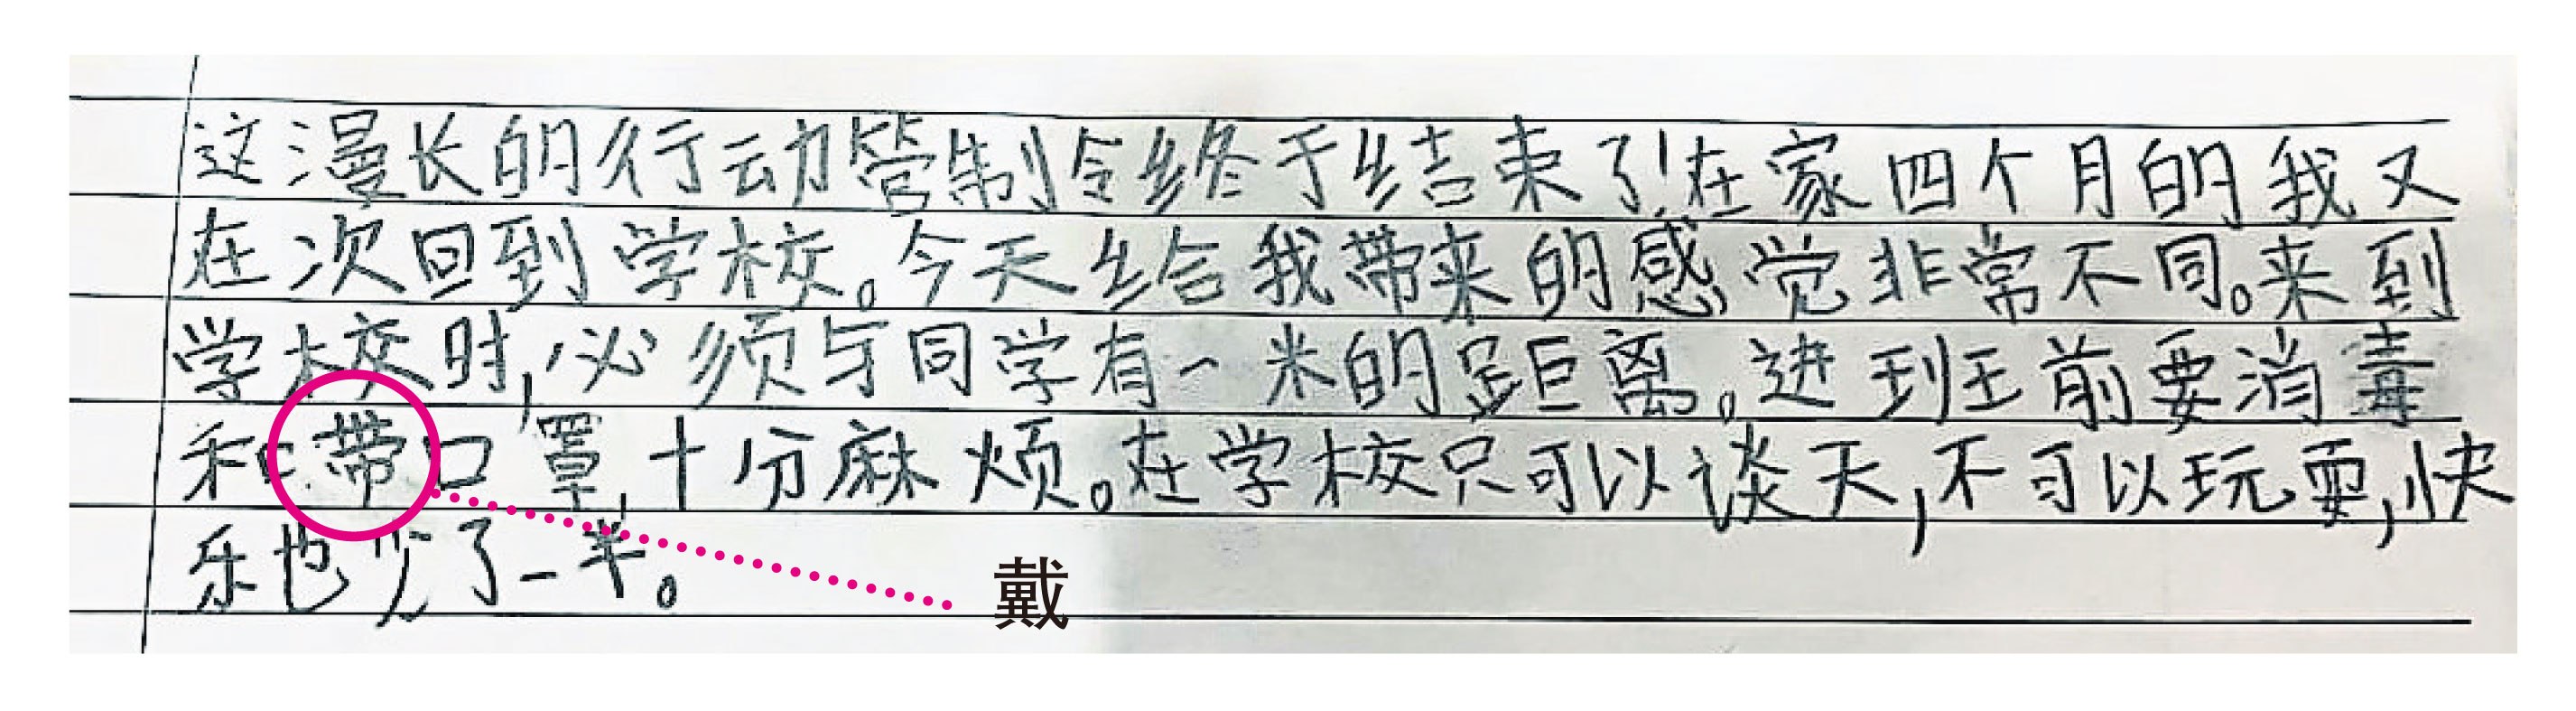 这漫长的行动管制令终于结束了!在家四个月的我又
在次回到学校。今天给我带来的感觉非常不同。来到
学校时,必须与同学有一米的距离。进到班前要消毒
和带口罩,十分麻烦。在学校只可以谈天,不可以玩耍,快
乐也少了一半。
戴